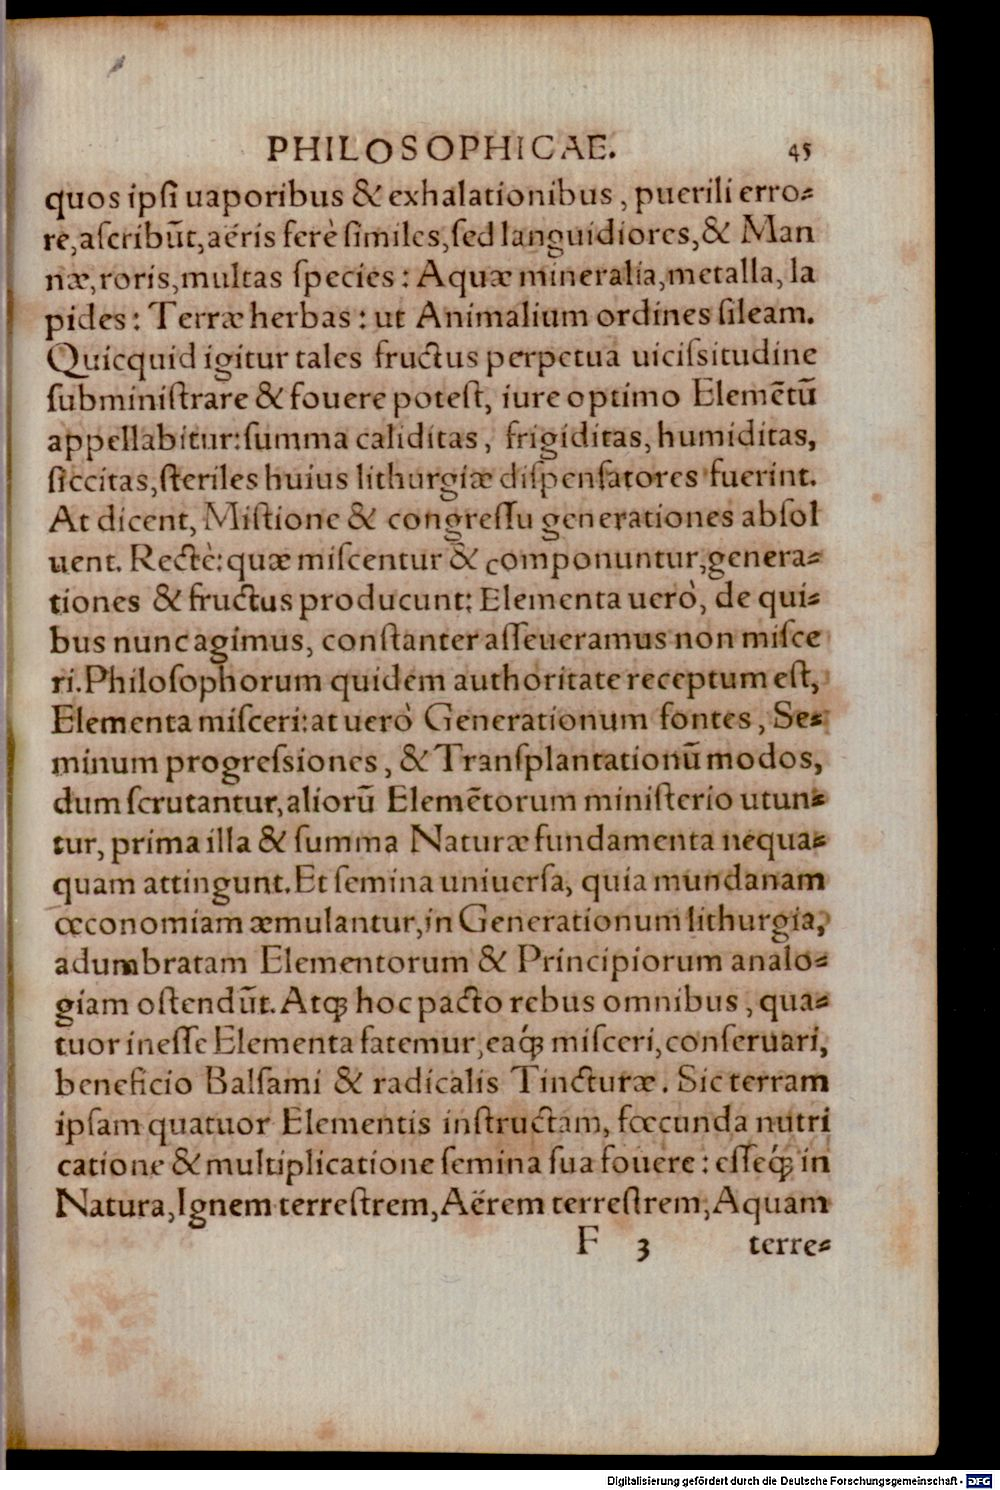 PHILOSOPHICAE. 45
quos ipſi uaporibus & exhalationibus, puerili erro-
re, aſcribūt, aëris ferè ſimiles, ſed languidiores, & Man
næ, roris, multas ſpecies: Aquæ mineralia, metalla, la
pides: Terræ herbas: ut Animalium ordines ſileam.
Quicquid igitur tales fructus perpetua uiciſsitudine
ſubminiſtrare & fouere poteſt, iure optimo Elemētū
appellabitur: ſumma caliditas, frigiditas, humiditas,
ſiccitas, ſteriles huius lithurgiæ diſpenſatores fuerint.
At dicent, Miſtione & congreſſu generationes abſol
uent. Rectè: quæ miſcentur & componuntur, genera-
tiones & fructus producunt: Elementa uerò, de qui-
bus nunc agimus, conſtanter aſſeueramus non miſce
ri. Philoſophorum quidem authoritate receptum eſt,
Elementa miſceri: at uerò Generationum fontes, Se-
minum progreſsiones, & Tranſplantationū modos,
dum ſcrutantur, aliorū Elemētorum miniſterio utun-
tur, prima illa & ſumma Naturæ fundamenta nequa-
quam attingunt. Et ſemina uniuerſa, quia mundanam
œconomiam æmulantur, in Generationum lithurgia,
adumbratam Elementorum & Principiorum analo-
giam oſtendūt. Atq́; hoc pacto rebus omnibus, qua-
tuor ineſſe Elementa fatemur, eaq́; miſceri, conſeruari,
beneficio Balſami & radicalis Tincturæ. Sic terram
ipſam quatuor Elementis inſtructam, fœcunda nutri
catione & multiplicatione ſemina ſua fouere: eſſeq́; in
Natura, Ignem terreſtrem, Aërem terreſtrem, Aquam
F 3 terre-
Digitalisierung gefördert durch die Deutsche Forschungsgemeinschaft - DFG